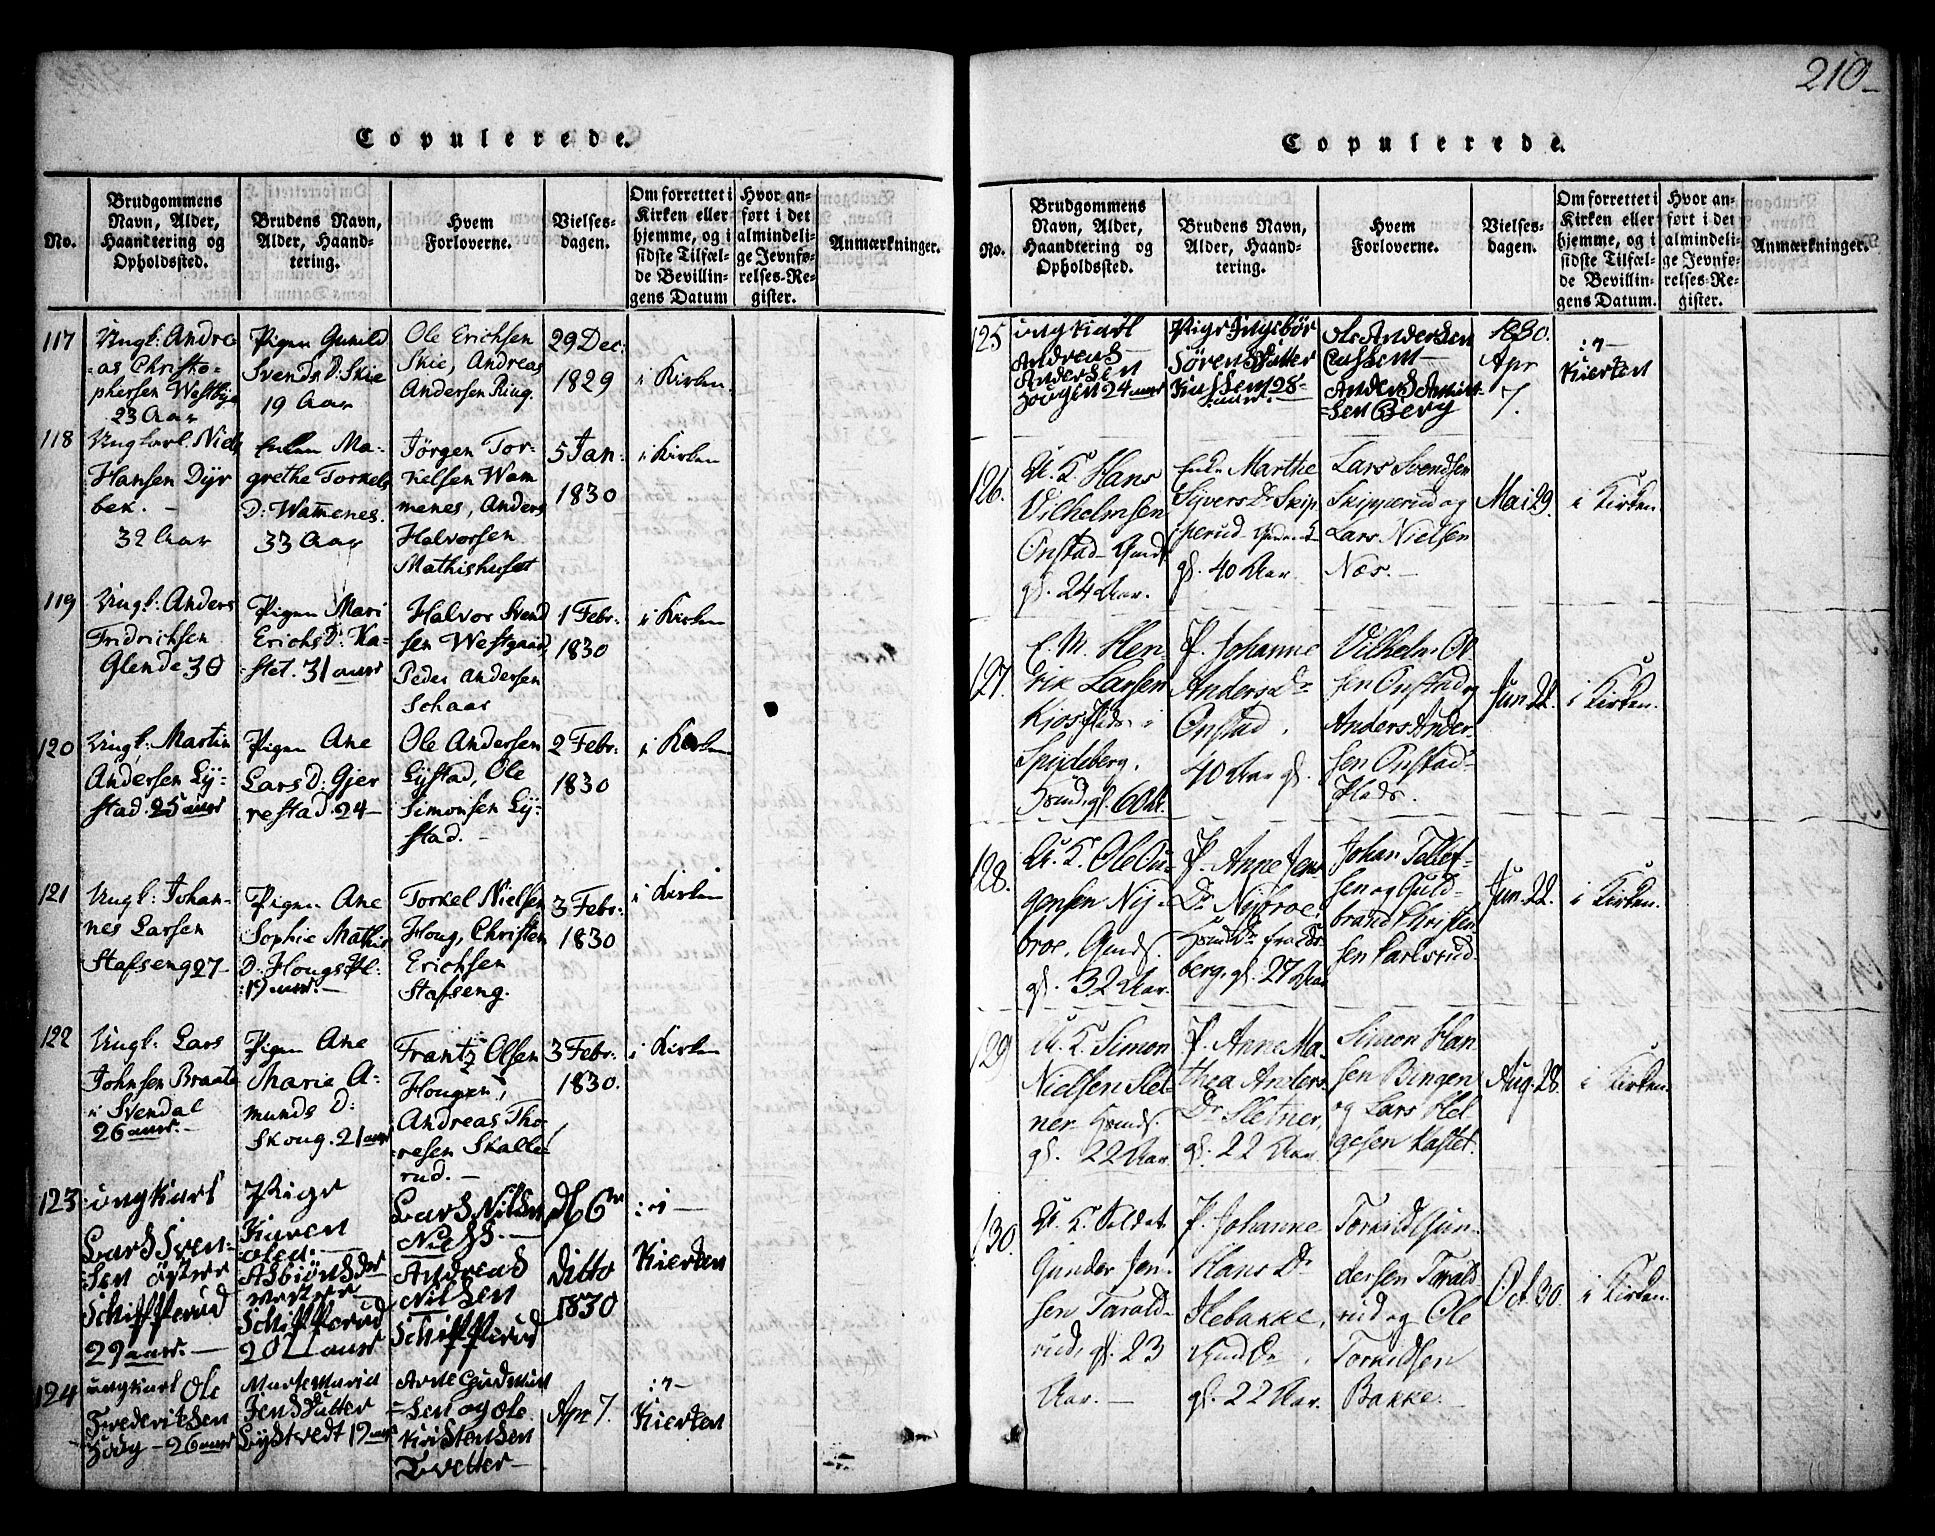 Copulerede.
No.
Brudgommens
Navn, Alder,
Haandtering og
Opholdssted.
Brudens Navn,
Alder, Haand-
tering.
Hvem
Forloverne.
Vielses-
dagen.
Om forrettet i
Kirken eller
hjemme, og i
sidste Tilfæl-
de Bevillin-
gens Datum
Hvor an-
ført i det
almindeli-
ge Jevnfø-
relses-Re-
gister.
Anmærkninger.
117
Ungk: Andre-
as Christo-
phersen Westbye
23 Aar
Pigen Gunild
Svends D: Skie
19 Aar
Ole Erichsen
Skie, Andreas
Andersen Ring.
29 Dec:
1829
i Kirken.
118
Ungkarl Niels
Hansen Dyr
bek. -
32 Aar
Enken Ma-
grethe Torkels
D: Wammenes.
33 Aar
Jørgen Tor-
kelsen Wam
menes, Anders
Halvorsen
Mathishuset
5 Jan:
1830
i Kirken
119
Ungk: Anders
Fridrichsen
Glende 30
Pigen Mari
Erichs D: Ka-
stet. 31 aar
Halvor Svend
sen Westgaard
Peder Andersen
Schaar
1 Febr:
1830
i Kirken
120
Ungk: Martin
Andersen Ly-
stad. 25 aar
Pigen Ane
Lars D: Gjer
restad. 24 -
Ole Andersen
Lystad, Ole
Simonsen Ly-
stad. -
2 Febr:
1830
i Kirken
121
Ungk: Johan-
nes Larsen
Stafseng 27 -
Pigen Ane
Sophie Mathis
D: Hougs Pl:
19 aar. -
Torkel Nielsen
Houg, Christen
Erichsen
Stafseng.
3 Febr:
1830
i Kirken
122
Ungk: Lars
Johnsen Braate
i Svendal
26 aar. -
Pigen Ane
Marie A-
munds D:
Skoug. 21 aar
Frantz Olsen
Hougen,
Andreas Tho-
resen Skalle-
rud. -
3 Febr:
1830.
i Kirken
123
ungkarl
Lars Iven-
sen öster
Schipperud
29 aar. -
Pige
Karen
olea
Asbiönsder
wester
Schipperud
20 aar
Lars Nilsen
Andreas
Nilsen
Schipperud
6te
Ditto
1830
: i -
Kierken
124
ungkarl Ole
Frederiksen
26 aar
Marte Maria
Jensdatter
Lystvedt 19 aar
Arne Gudmun
-sen og Ole
Kristensen
Tvetter -
Apr 7.
: i -
Kierken
210-
Copulerede.
No.
Brudgommens
Navn, Alder,
Haandtering og
Opholdssted.
Brudens Navn,
Alder, Haand-
tering.
Hvem
Forloverne.
Vielses-
dagen.
Om forrettet i
Kirken eller
hjemme, og i
sidste Tilfæl-
de Bevillin-
gens Datum.
Hvor an-
ført i det
almindeli-
ge Jevnfø-
relses-Re-
gister.
Anmærkninger.
125
ungkarl
Andreas
Andersen
Hougen 24 aar
Pige Ingebör
Sörensdatter
28-
aar.
Ole Andersen
Anders
-sen Berg
1830.
Apr
7.
: i -
Kierken
126.
U. K. Hans
Vilhelmsen
Onstad
gl. 24 Aar.
Enke Marthe
Syvers Dr Skip
perud
gl. 40 Aar.
Lars Svendsen
Skipperud og
Lars Nielsen
Næs. -
Mai 29.
i Kirken
127.
E. M. Hen-
rik Larsen
Kjos Plads i
Spydeberg,
gl. 60 Ar.
P. Johanne
Anders Dr
Onstad,
40 Aar gl.
Vilhelm Ol-
sen Onstad og
Anders Ander-
sen Onstad-
Plads.
Jun. 22.
i Kirken.
128.
U. K. Ole Au-
gensen Ny-
broe,
gl. 32 Aar.
P. Anne Jens
Dr Nybroe,
berg, gl. 27 Aar
Johan Tollef-
sen og Guld-
brand Christen-
sen Karlsrud.
Jun. 22.
i Kirken.
129
U. K. Simon
Nielsen Slet-
ner
gl. 22 Aar
P. Anne Ma-
thea Anders
Dr Sletner,
gl. 22 Aar.
Simon Han-
sen Bingen
og Lars Hel-
gesen Kastet.
Aug. 28.
i Kirken.
130.
U. K. Soldat
Gunder Jen-
sen Tarald-
rud, gl. 23
Aar. -
P. Johanne
Hans Dr
Hebakke,
gl. 22 Aar.
Torkild Gun-
dersen Tarald-
rud og Ole
Torkildsen
Bakke.
Oct. 30.
i Kirken.